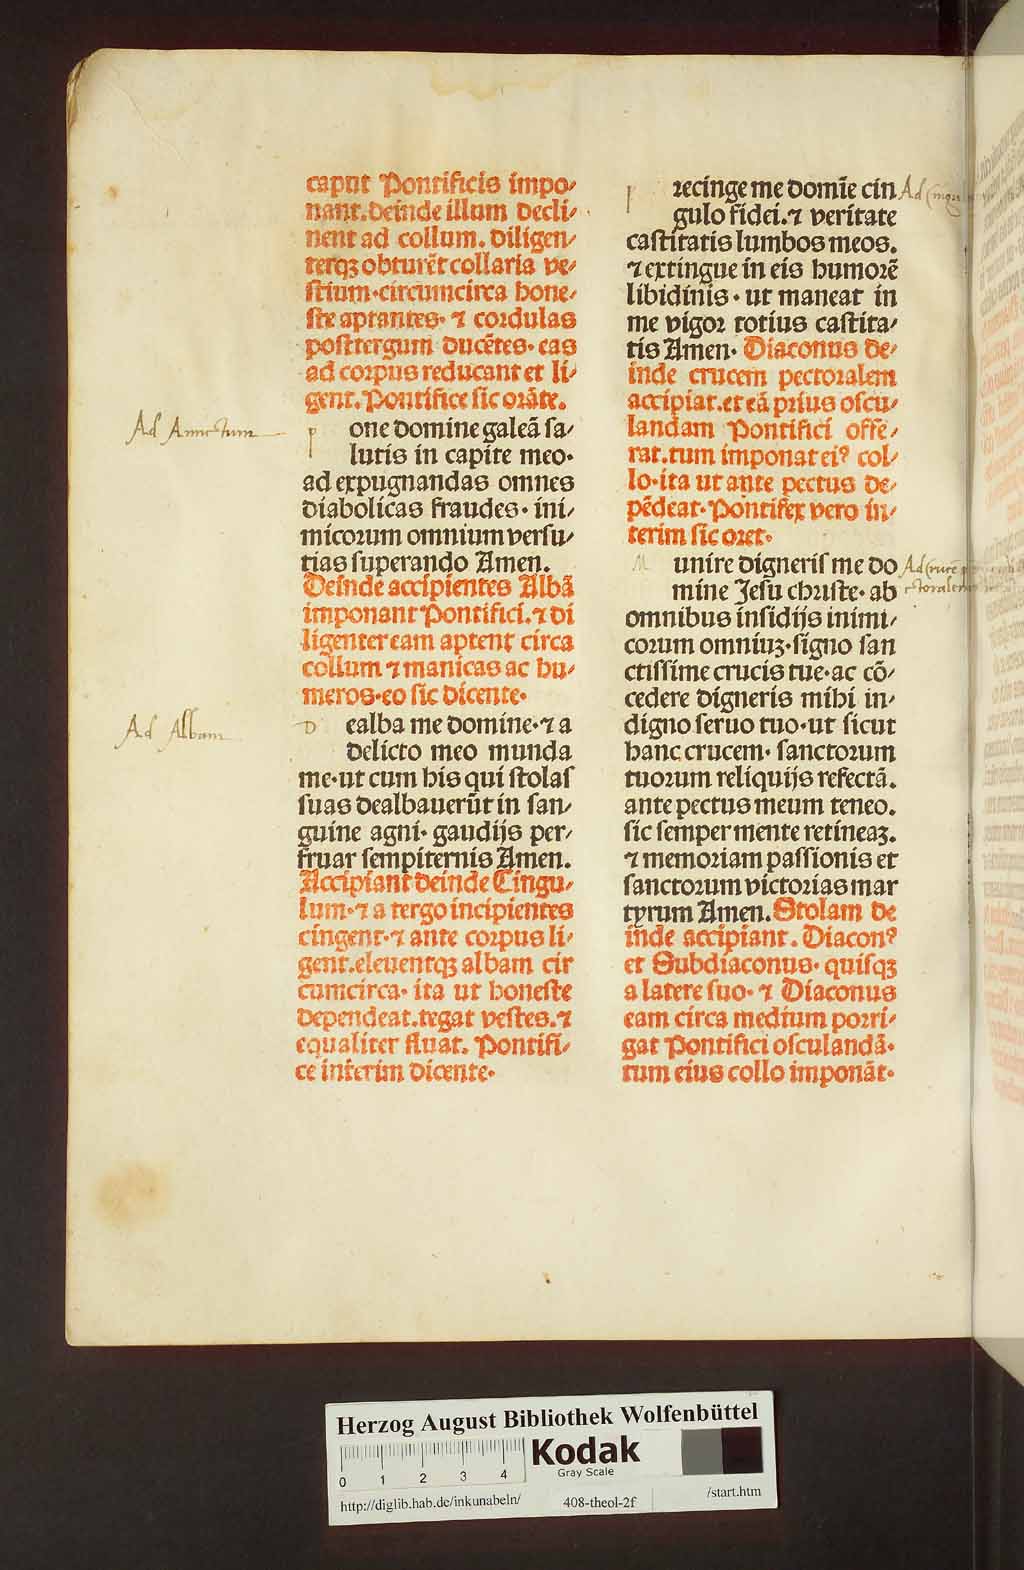 caput Pontificis impo⸗
nant. deinde illum decli⸗
nent ad collum. diligen⸗
terqꝫ obturēt collaria ve⸗
ſtium·circumcirca hone⸗
ſte aptantes· ⁊ cordulas
poſttergum ducētes· eas
ad corpus reducant et li⸗
gent. Pontifice ſic orāte.
Ad Amictum
p one domine galeā ſa⸗
lutis in capite meo·
ad expugnandas omnes
diabolicas fraudes· ini⸗
micorum omnium verſu⸗
tias ſuperando Amen.
Deinde accipientes Albā
imponant Pontifici. ⁊ di
ligenter eam aptent circa
collum ⁊ manicas ac hu⸗
meros·eo ſic dicente·
Ad Albam
D ealba me domine·⁊ a
delicto meo munda
me·ut cum his qui ſtolaſ
ſuas dealbauerūt in ſan⸗
guine agni· gaudijs per⸗
fruar ſempiternis Amen.
Accipiant deinde Cingu⸗
lum·⁊ a tergo incipientes
cingent·⁊ ante corpus li⸗
gent. eleuentqꝫ albam cir
cumcirca· ita ut honeſte
dependeat. tegat veſtes. ⁊
equaliter fluat. Pontifi⸗
ce interim dicente·
p recinge me domīe cin
gulo fidei. ⁊ veritate
caſtitatis lumbos meos.
⁊ extingue in eis humorē
libidinis· ut maneat in
me vigor totius caſtita⸗
tis Amen· Diaconus de⸗
inde crucem pectoralem
accipiat. et eā prius oſcu⸗
landam Pontifici offe⸗
rat. tum imponat eiꝰ col⸗
lo·ita ut ante pectus de⸗
pēdeat· Pontifex vero in⸗
terim ſic oret·
M unire digneriſ me do
mine Jeſu chriſte· ab
omnibus inſidijs inimi⸗
corum omniuꝫ·ſigno ſan
ctiſſime crucis tue·ac cō⸗
cedere digneris mihi in⸗
digno ſeruo tuo·ut ſicut
hanc crucem· ſanctorum
tuorum reliquijs refectā.
ante pectus meum teneo.
ſic ſemper mente retineaꝫ.
⁊ memoriam paſſionis et
ſanctorum victorias mar
tyrum Amen. Stolam de
inde accipiant. Diaconꝰ
et Subdiaconus· quiſqꝫ
a latere ſuo· ⁊ Diaconus
eam circa medium porri⸗
gat Pontifici oſculandā·
tum eius collo imponāt·
Herzog August Bibliothek Wolfenbüttel
0 1 2 3 4
Kodak
Gray Scale
http://diglib.hab.de/inkunabeln/ 408-theol-2f /start.htm